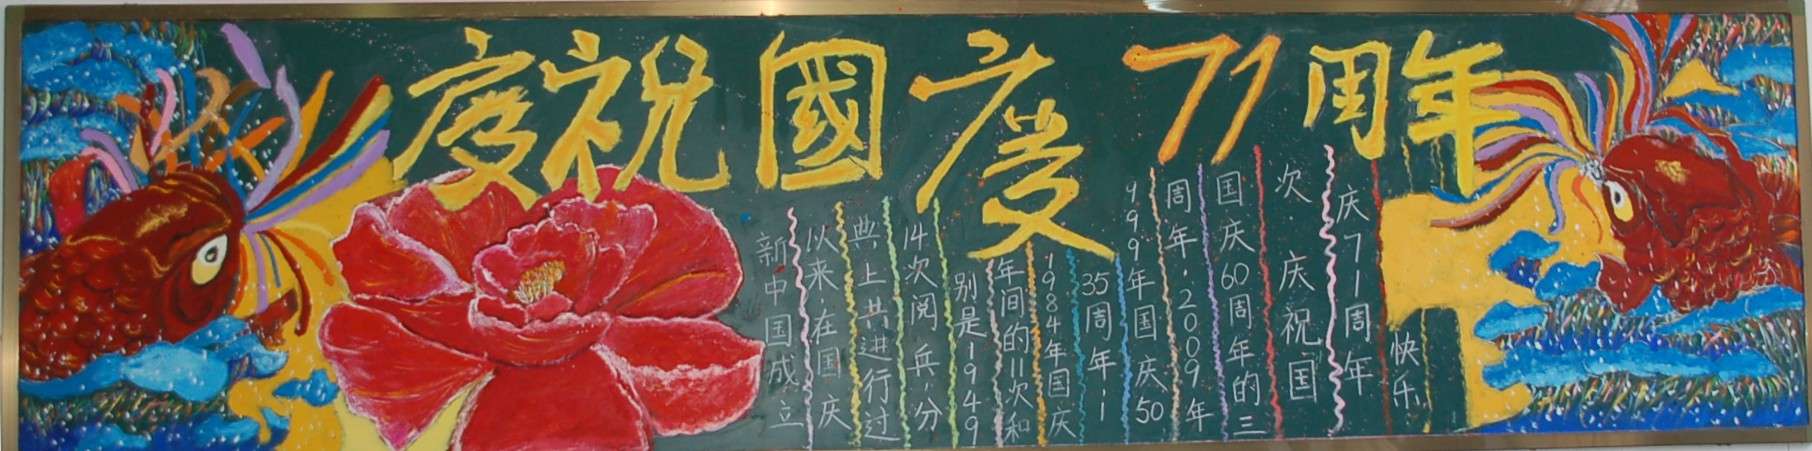 慶祝國慶71周年
新中国成立
以来,在国庆
典上共进行过
14次阅兵,分
别是1949
年间的11次和
1984年国庆
35周年,1
999年国庆50
周年,2009年
国庆60周年的三
次 庆祝国
庆71周年
快乐